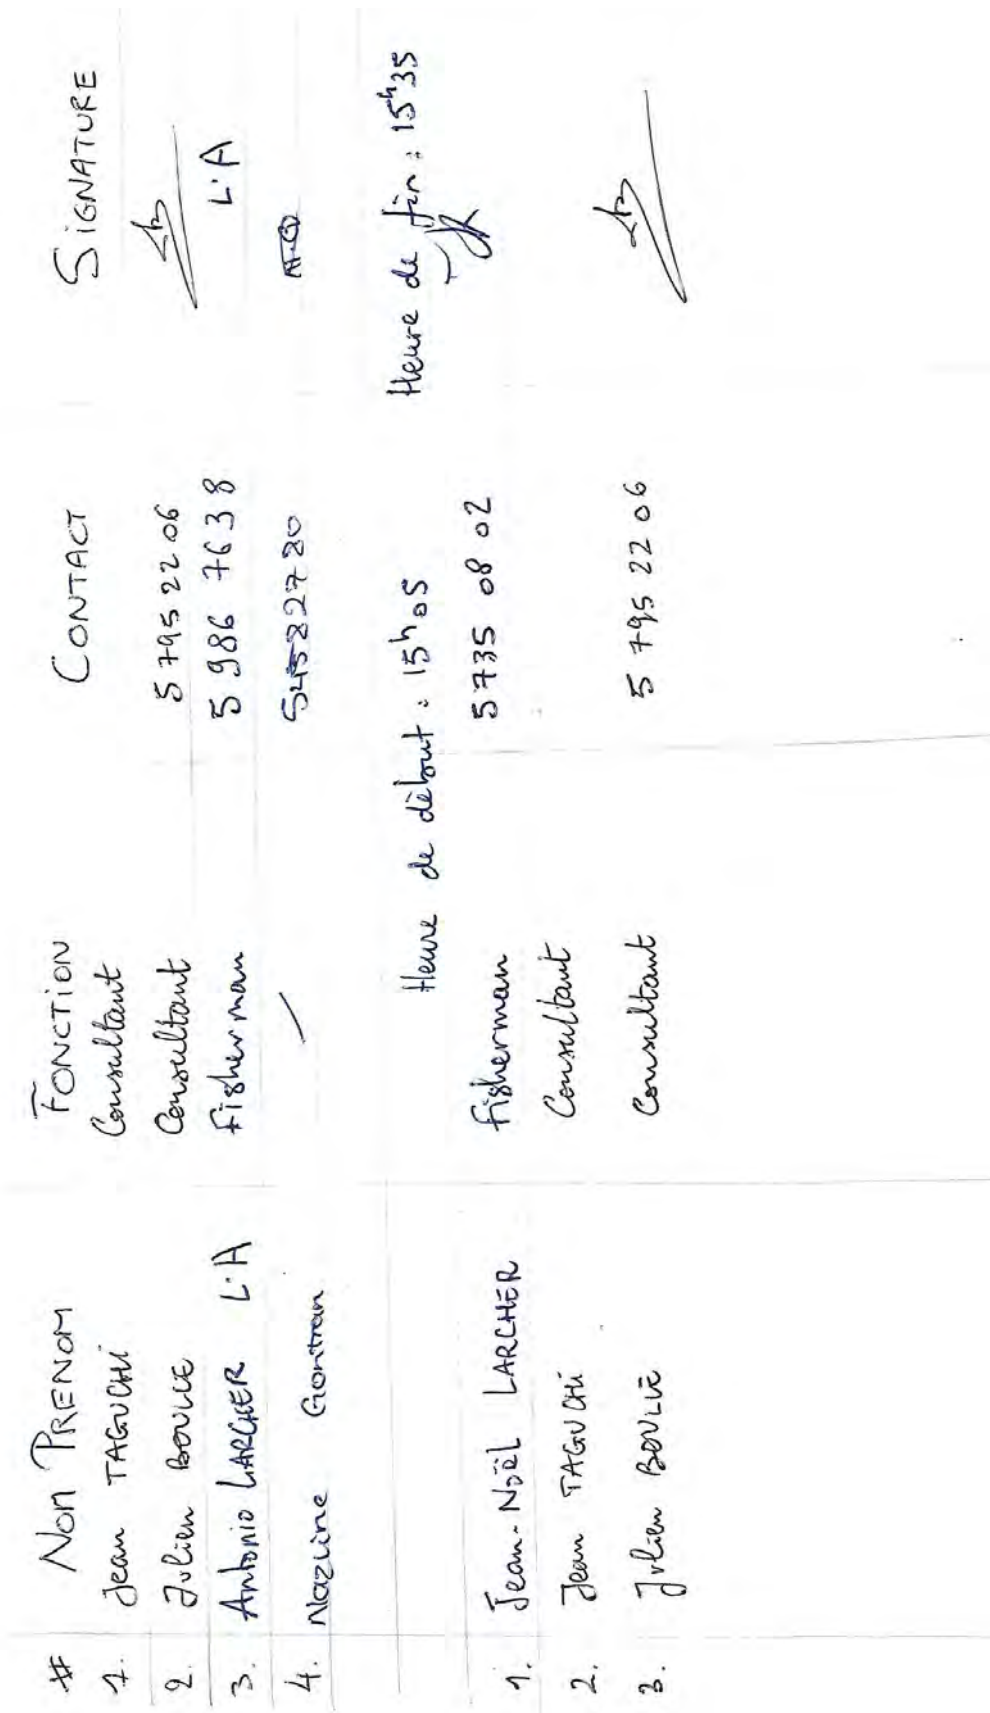 # NOM PRENOM FONCTION CONTACT SIGNATURE
1. Jean TAGUCHI Consultant
2. Julien BOULLE Consultant 5 795 22 06
3. Antonio LARCHER L.A Fisherman 5 986 7638 L.A
4. Nazline Gontran /
Heure de début : 15h05 Heure de fin : 15h35
1. Jean-Noël LARCHER Fisherman 5735 08 02
2. Jean TAGUCHI Consultant
3. Julien BOULLÉ Consultant 5 795 22 06